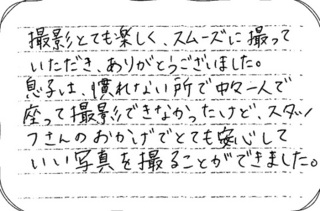 撮影とても楽しく、スムーズに撮って
いただき、ありがとうございました。
息子は、慣れない所で中々一人で
座って撮影できなかったけど、スタッ
フさんのおかげでとても安心して
いい写真を撮ることができました。